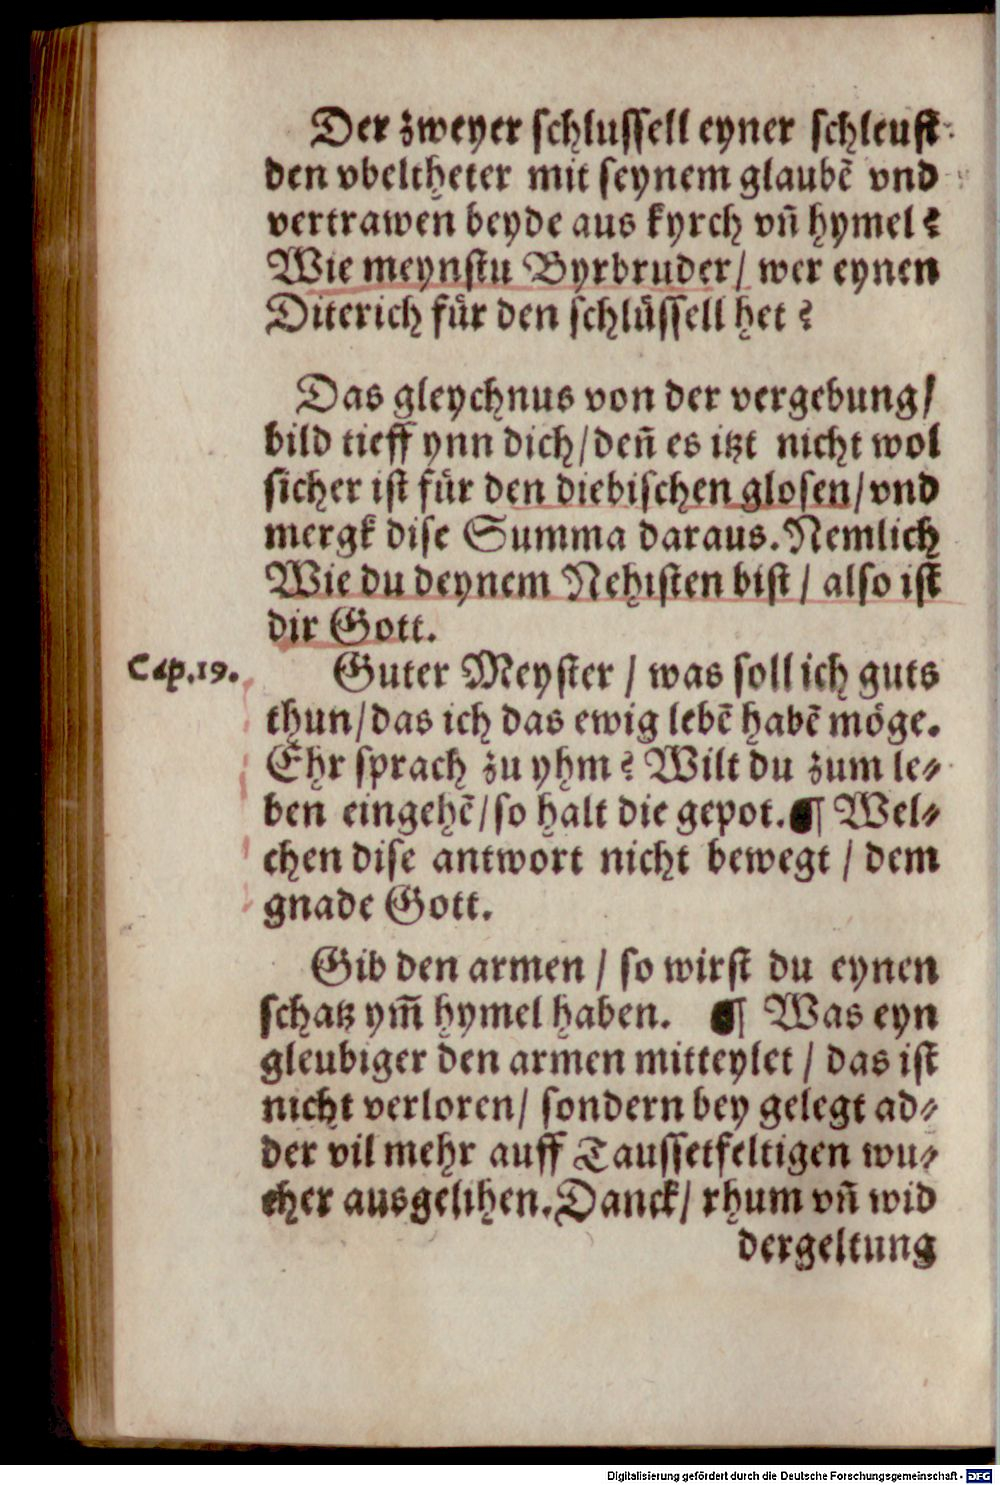 Der zweyer schlussell eyner schleust
den vbeltheter mit seynem glaubē vnd
vertrawen beyde aus kyrch vn̄ hymel?
Wie meynstu Byrbruder/ wer eynen
Diterich für den schlüssell het?
Das gleychnus von der vergebung/
bild tieff ynn dich/ den̄ es itzt nicht wol
sicher ist für den diebischen glosen/ vnd
mergk dise Summa daraus. Nemlich
Wie du deynem Nehisten bist / also ist
dir Gott.
Cap. 19. Guter Meyster / was soll ich guts
thun/ das ich das ewig lebē habē möge.
Ehr sprach zu yhm? Wilt du zum le⸗
ben eingehē/ so halt die gepot. ¶ Wel⸗
chen dise antwort nicht bewegt / dem
gnade Gott.
Gib den armen / so wirst du eynen
schatz ym̄ hymel haben. ¶ Was eyn
gleubiger den armen mitteylet / das ist
nicht verloren/ sondern bey gelegt ad⸗
der vil mehr auff Taussetfeltigen wu⸗
cher ausgelihen. Danck/ rhum vn̄ wid
dergeltung
Digitalisierung gefördert durch die Deutsche Forschungsgemeinschaft - DFG